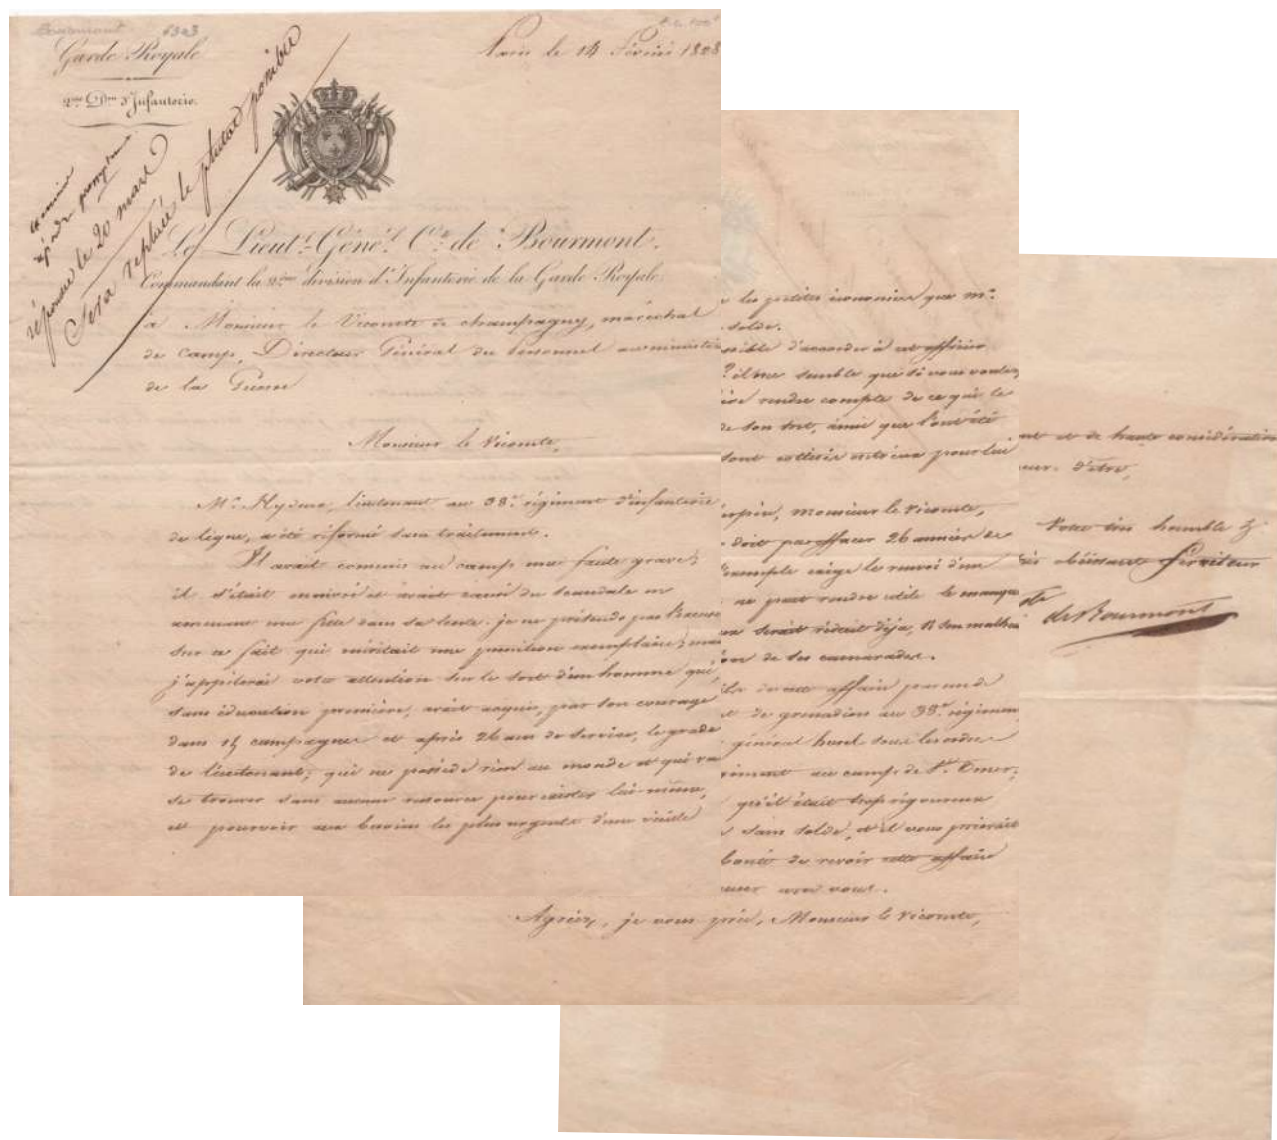 Bourmont 6323
Garde Royale
2me Don d'Infanterie.
Paris le 14 Février 1828
examiner
répondre promptement
répondu le 20 mars
Sera replacé le plutot possible
Le Lieutt. Génél. Cte. de Bourmont.
Commandant la 2eme division d'Infanterie de la Garde Royale.
à Monsieur le Vicomte de Champagny, maréchal
de camp, Directeur Général du Personnel au ministère
de la Guerre
Monsieur le Vicomte,
Mr. Hydeux, lieutenant au 38e. régiment d'infanterie
de ligne, a été réformé sans traitement.
Il avait commis au camp une faute grave;
il s'était enivré et avait causé du scandale en
amenant une fille dans sa tente. je ne prétends pas l'excuser
sur ce fait qui méritait une punition exemplaire; mais
j'appellerai votre attention sur le sort d'un homme qui,
sans éducation première, avait acquis, par son courage
dans 14 campagnes et après 26 ans de service, le grade
de lieutenant; qui ne possède rien au monde et qui va
se trouver sans aucune resource pour exister lui-même,
et pourvoir aux besoins les plus urgents d'une vieille
les petites économies que Mr.
solde.
possible d'accorder à cet officier
il me semble que si vous voulez
rendre compte de ce qui le
de son sort, ainsi que l'ont été
sont
pour lui
monsieur le Vicomte,
doit pas effacer 26 années de
exemple exige le renvoi d'un
ne peut rendre utile le manque
serait réduit déja, et son malheur
de ses camarades.
de cette affaire par un de
de grenadiers au 38e. régiment,
général hurel sous les ordres
régiment au camp de St. Omer;
qu'il était trop rigoureux
sans solde, et il vous prierait
bonté de revoir cette affaire
avec vous.
Agréez, je vous prie, Monsieur le Vicomte,
et de haute considération
d'être,
Votre très humble &
très obéissant Serviteur
Cte de Bourmont